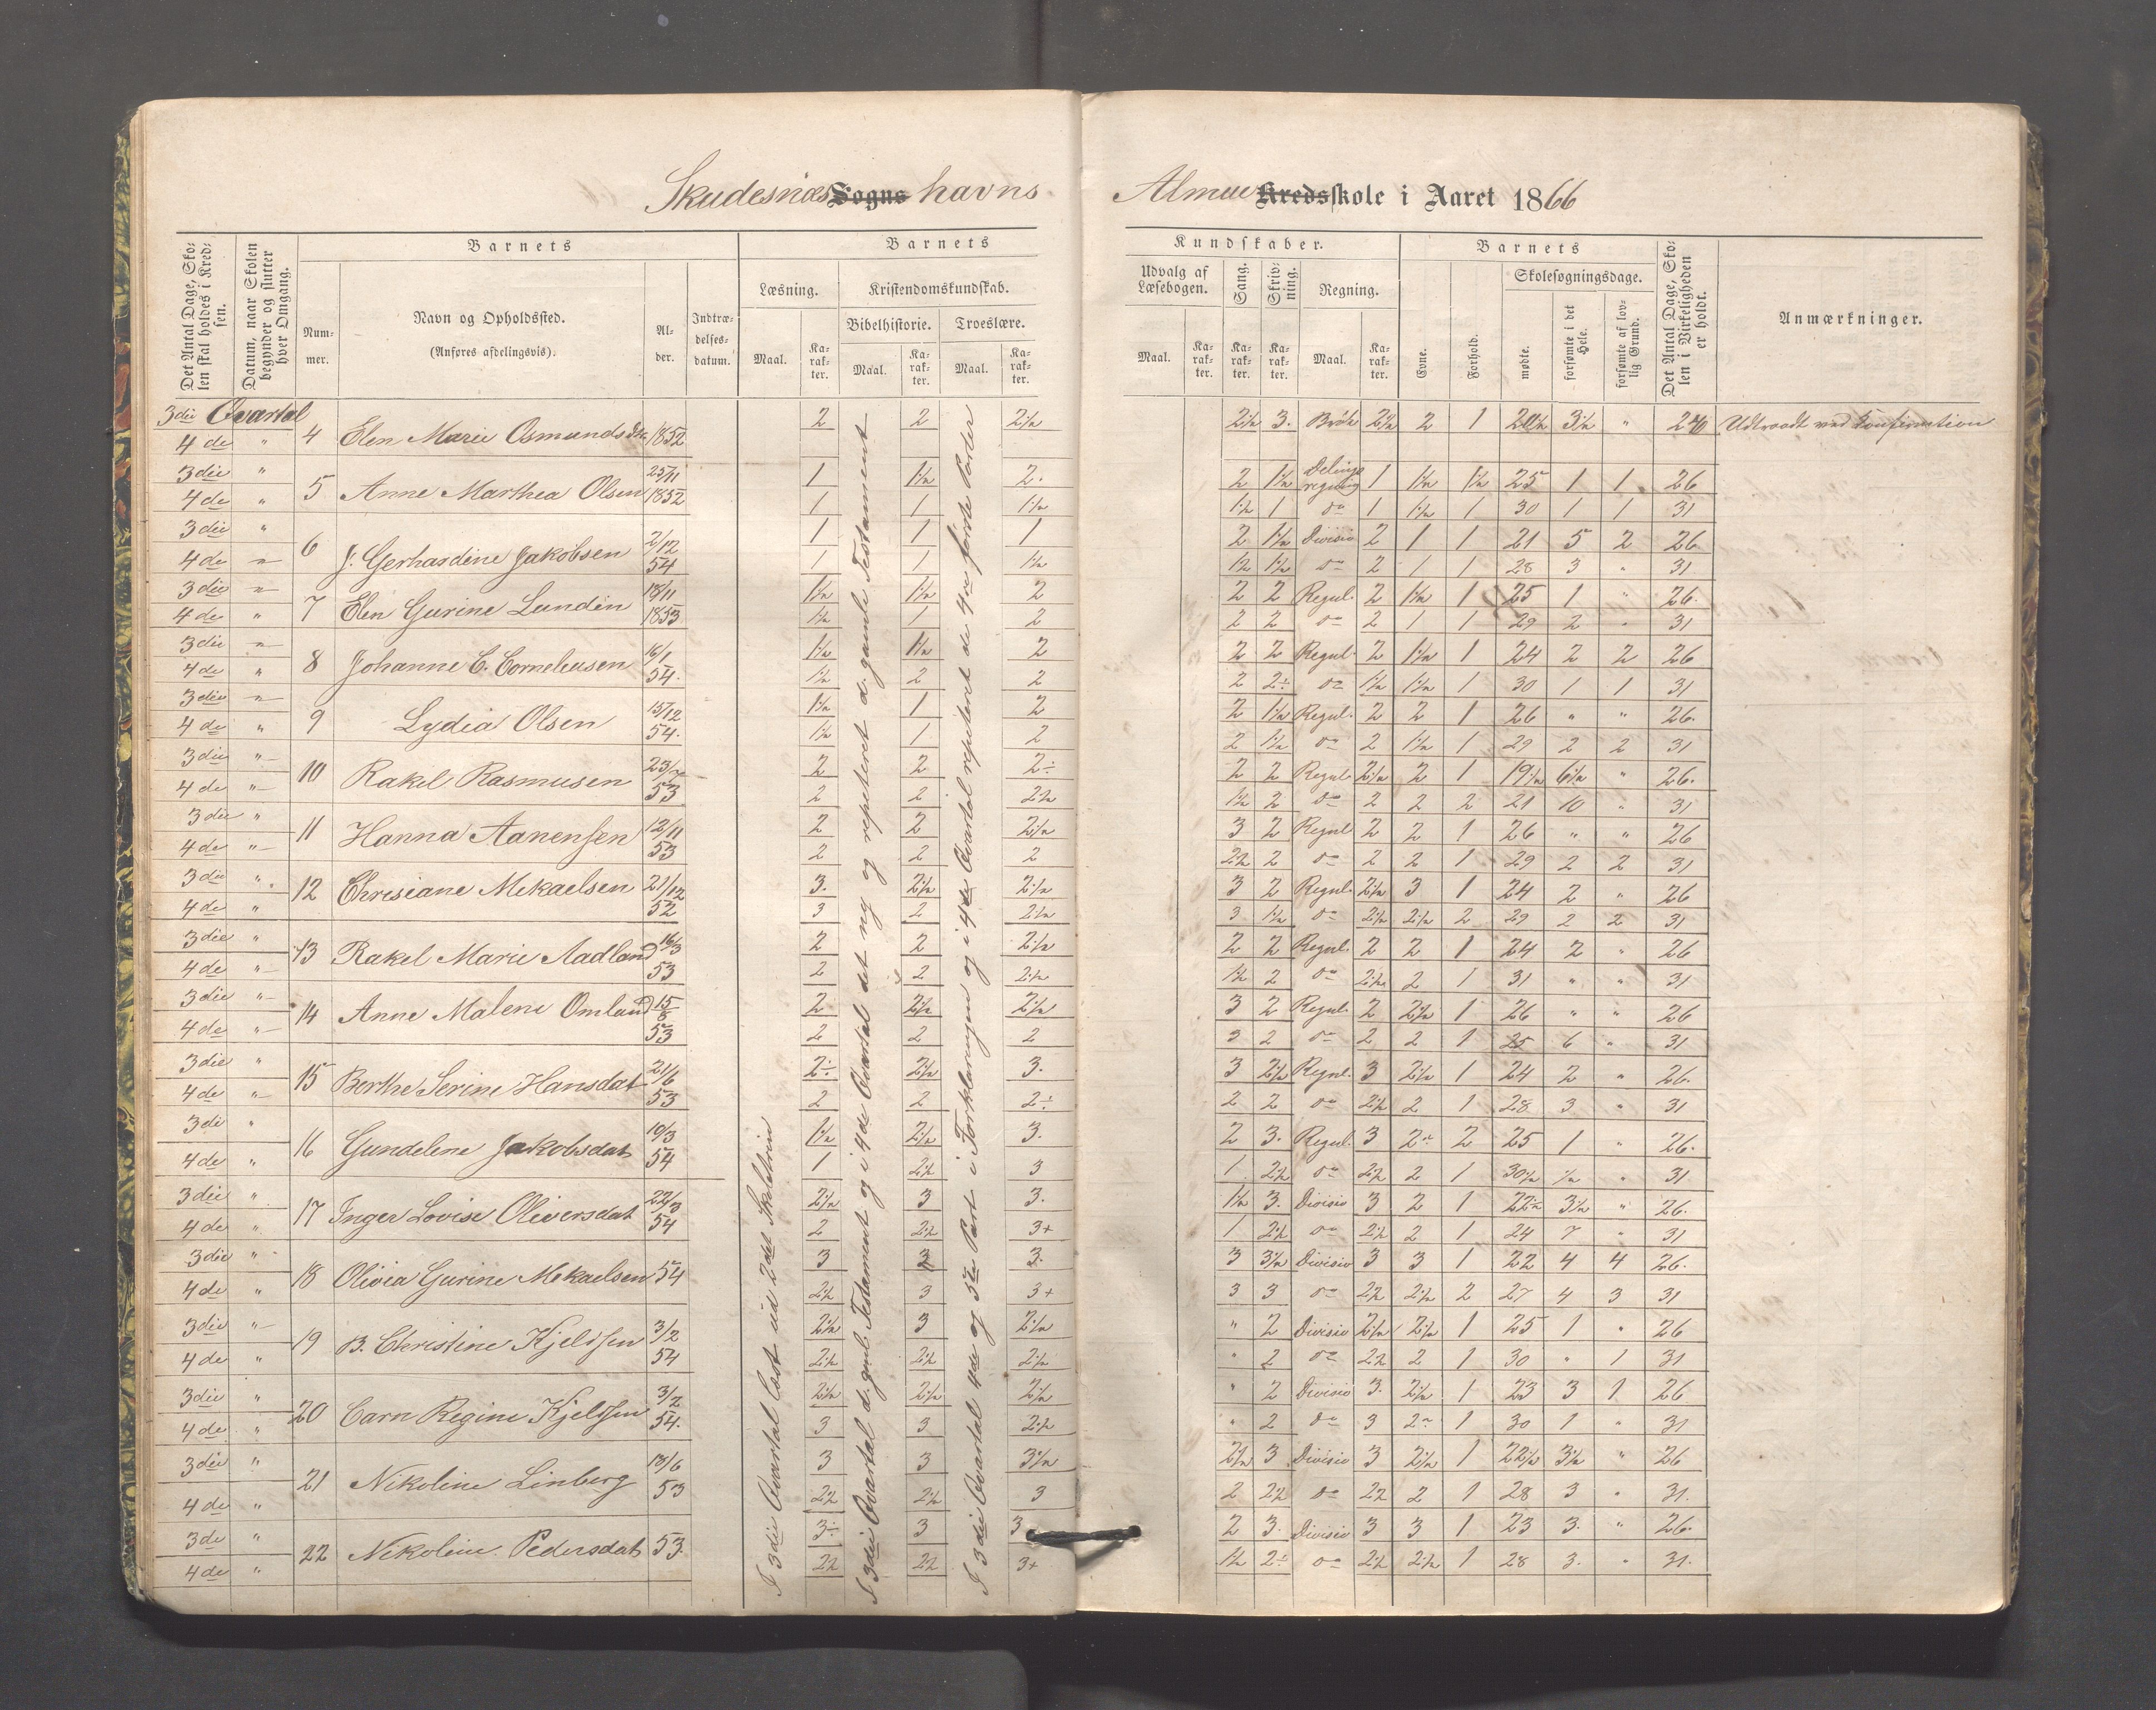 Skudesnæs Sogns havns Almue Kredsskole i Aaret 1866
Det Antal Dage, Skolen skal holdes i Kredsen.
Datum, naar Skolen begynder og slutter hver Omgang.
Barnets
Nummer.
Navn og Opholdssted.
(Anføres afdelingsvis).
Alder.
Indtrædelsesdatum.
Barnets Kundskaber.
Læsning.
Kristendomskundskab.
Bibelhistorie.
Troeslære.
Maal.
Karakter.
Maal.
Karakter.
Maal.
Karakter.
Udvalg af Læsebogen.
Maal.
Karakter.
Sang.
Karakter.
Skrivning.
Karakter.
Regning.
Maal.
Karakter.
Barnets
Evne.
Forhold.
Skolesøgningsdage.
mødte.
forsømte i det Hele.
forsømte af lovlig Grund.
Det Antal Dage, Skolen i Virkeligheden er holdt.
Anmærkninger.
3die Qvartal 4 Elen Marie Osmundsdtr 1852 2 2 2½ 2½ 3. Brök 2½ 2 1 20½ 3½ " 24 Udtraadt ved Konfirmation
4de "
3die " 5 Anne Marthea Olsen 25/11 1852 1 1½ 2. 2 1½ Delings regning 1 1½ 1½ 25 1 1 26
4de " 1 1 1½ 1½ 1 do 1 1½ 1 30 1 1 31
3die " 6 J. Gerhardine Jakobsen 2/12 54 1 1 1 2 1½ Divisio 2 1 1 21 5 2 26
4de " 1 1 1½ 1½ 1½ do 2 1 1 28 3 " 31
3die " 7 Elen Gurine Lundin 18/11 1853 1½ 1½ 2 2 2 Regul. 2 1½ 1 25 1 " 26.
4de " 1½ 1 2 2 2 do 2 1 1 29 2 " 31
3die " 8 Johanne C. Corneliusen 16/1 54. 1½ 1½ 2 2 2 Regul. 2 1½ 1 24 2 2 26
4de " 1½ 2 2 2 2÷ do 1½ 1½ 1 30 1 1 31
3die " 9 Lydia Olsen 15/12 54. 1½ 1 2 2 1½ Regul. 2 2 1 26 " " 26.
4de " 1½ 1 2 2 1½ do 2 1½ 1 29 2 2 31
3die " 10 Rakel Rasmusen 53 2 2 2÷ 2 2 Regul 2½ 2 1 19½ 6½ " 26.
4de " 2 2 2½ 1½ 2 do 2 2 2 21 10 " 31
3die " 11 Hanna Aanensen 12/11 53 2 2 2½ 3 2 Regul 2 2 1 26 " " 26
4de " 2 2 2 2½ 2 do 2 2 1 29 2 2 31
3die " 12 Chrisiane Mikaelsen 21/12 52 3. 2½ 2½ 3 2 Regul. 2½ 3 1 24 2 " 26
4de " 3 2 2½ 3 1½ do 2½ 2½ 2 29 2 2 31
3die " 13 Rakel Marie Aadland 16/3 53 2 2 2½ 2 2 Regul. 2 2 1 24 2 " 26
4de " 2 2 2½ 1½ 2 do 2½ 2 1 31 " " 31
3die " 14 Anne Malene Omland 15/8 53 2 2½ 2½ 3 2 Regul. 2 2½ 1 26 " " 26
4de " 2 2 2 3 2 do 2 2 1 25 6 " 31
3die " 15 Berthe Serine Hansdat 21/6 53 2÷ 2½ 3. 3 2½ Regul. 3 2½ 1 24 2 " 26.
4de " 2 2 2÷ 2 2 do 2½ 2 1 28 3 " 31
3die " 16 Gundelene Jakobsdat 10/3 54 1½ 2½ 3. 2 3. Regul. 3 2 2 25 1 " 26.
4de " 1 2½ 3 1 2½ do 2½ 2 1 30½ ½ " 31
3die " 17 Inger Lovise Oliversdat 22/3 54 2½ 3 3. 1½ 3. Divisio 3 2 1 22½ 3½ " 26.
4de " 2 2½ 3+ 1 2½ do 2½ 2 1 24 7 " 31
3die " 18 Olivia Gurine Mekaelsen 54 3 3 3. 3 3½ Divisio 3 3 1 22 4 4 26.
4de " 2½ 3 3+ 3 3 do 2½ 2½ 2 27 4 3 31
3die " 19 B. Christine Kjelssen 3/2 54 2½ 3 2½ " 2 Divisio 2½ 2½ 1 25 1 " 26
4de " 2½ 2½ 2½ " 2 do 2½ 2 1 30 " 1 31
3die " 20 Carn Regine Kjelssen 3/2 54. 2½ 2½ 2½ " 2 Divisio 3. 2½ 1 23 3 1 26
4de " 3 3 2½ " 2 do 3 2 1 30 1 " 31
3die " 21 Nikoline Linberg 13/6 53 3 3 3½ 2½ 3 Divisio 3 2½ 1 22½ 3½ " 26
4de " 2½ 2½ 3 2 2½ do 2½ 2 1 28 3 " 31.
3de " 22 Nikoline Pedersdat 53. 3÷ 3 3 2 3. Divisio 3 3 1 23 3. " 26.
4de " 2½ 2½ 3+ 1½ 2÷ do 2½ 2½ 1 28 3. " 31.
I 3die Qvartal læst ud 2det Skoletrin
I 3die Qvartal d. gml. Testament og i 4de Qvartal det ny og repeteret d. gamle Testament
I 3die Qvartal 4de og 5te Part i Forklaringen og i 4de Qvartal repeteret de 4re förste Parter